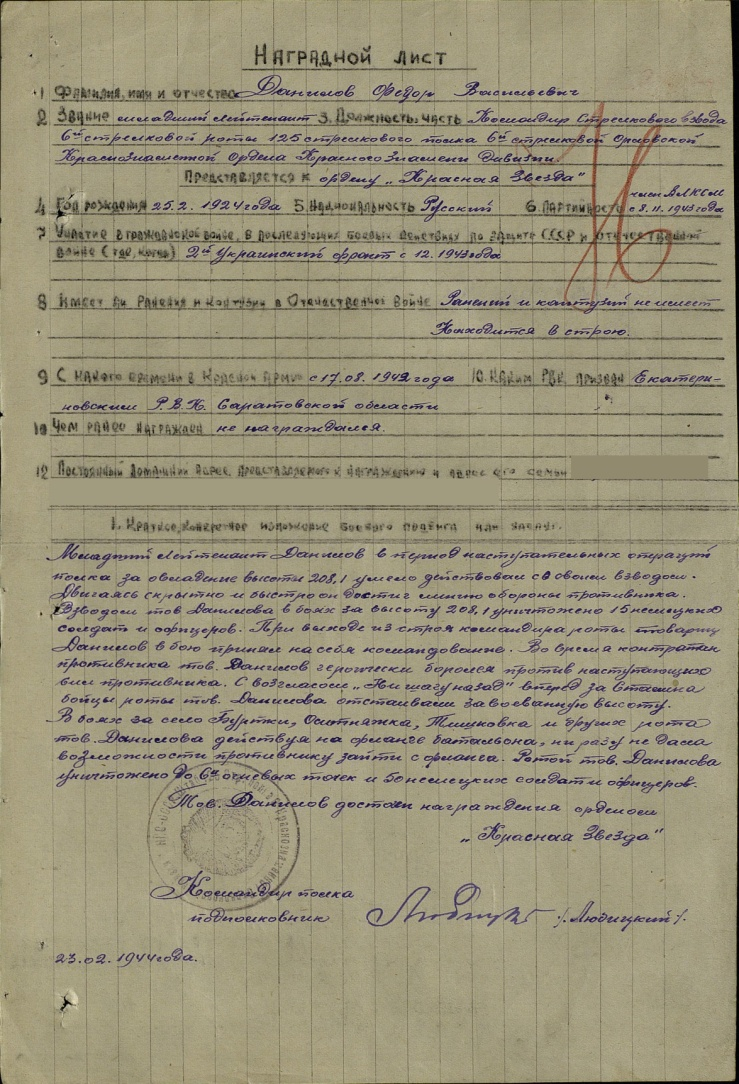 Наградной лист
1 Фамилия, имя и отчество Данилов Федор Васильевич
2 Звание младший лейтенант 3. Должность, часть Командир Стрелкового взвода
6ой стрелковой роты 125 стрелкового полка 6ой стрелковой Орловской
Краснознаменной Ордена Красного Знамени дивизии.
Представляется к ордену „Красная Звезда"
член ВЛКСМ
4 Год рождения 25.2. 1924 года 5. Национальность Русский 6. Партийность с 8.11.1943 года
7 Участие в гражданской войне, в последующих боевых действиях по защите СССР и отечественной
войне (где, когда) 2ой Украинский фронт с 12.1943 года
8 Имеет ли ранения и контузии в Отечественной войне Ранений и контузий не имеет
Находится в строю.
9 С какого времени в Красной Армии с 17.08.1942 года 10. Каким РВК призван Екатери-
новским Р.В.К. Саратовской области
10 Чем ранее награжден не награждался.
12 Постоянный домашний адрес представляемого к награждению и адрес его семьи
1. Краткое, конкретное изложение боевого подвига или заслуг.
Младший Лейтенант Данилов в период наступательных операций
полка за овладение высоты 208,1 умело действовал со своим взводом.
Двигаясь скрытно и быстро он достиг линию обороны противника.
Взводом тов. Данилова в боях за высоту 208,1 уничтожено 15 немецких
солдат и офицеров. При выходе из строя командира роты товарищ
Данилов в бою принял на себя командование. Во время контратак
противника тов. Данилов героически боролся против наступающих
сил противника. С возгласом „Ни шагу назад" вперед за Сталина
бойцы роты тов. Данилова отстаивали завоеванную высоту.
В боях за село Буртки, Оситняжка, Тишковка и других рота
тов. Данилова действуя на фланге батальона, ни разу не дала
возможности противнику зайти с фланга. Ротой тов. Данилова
уничтожено до 6и огневых точек и 60 немецких солдат и офицеров.
Тов. Данилов достоин награждения орденом
„Красная Звезда"
Командир полка
подполковник /Любицкий/.
23.02.1944 года.